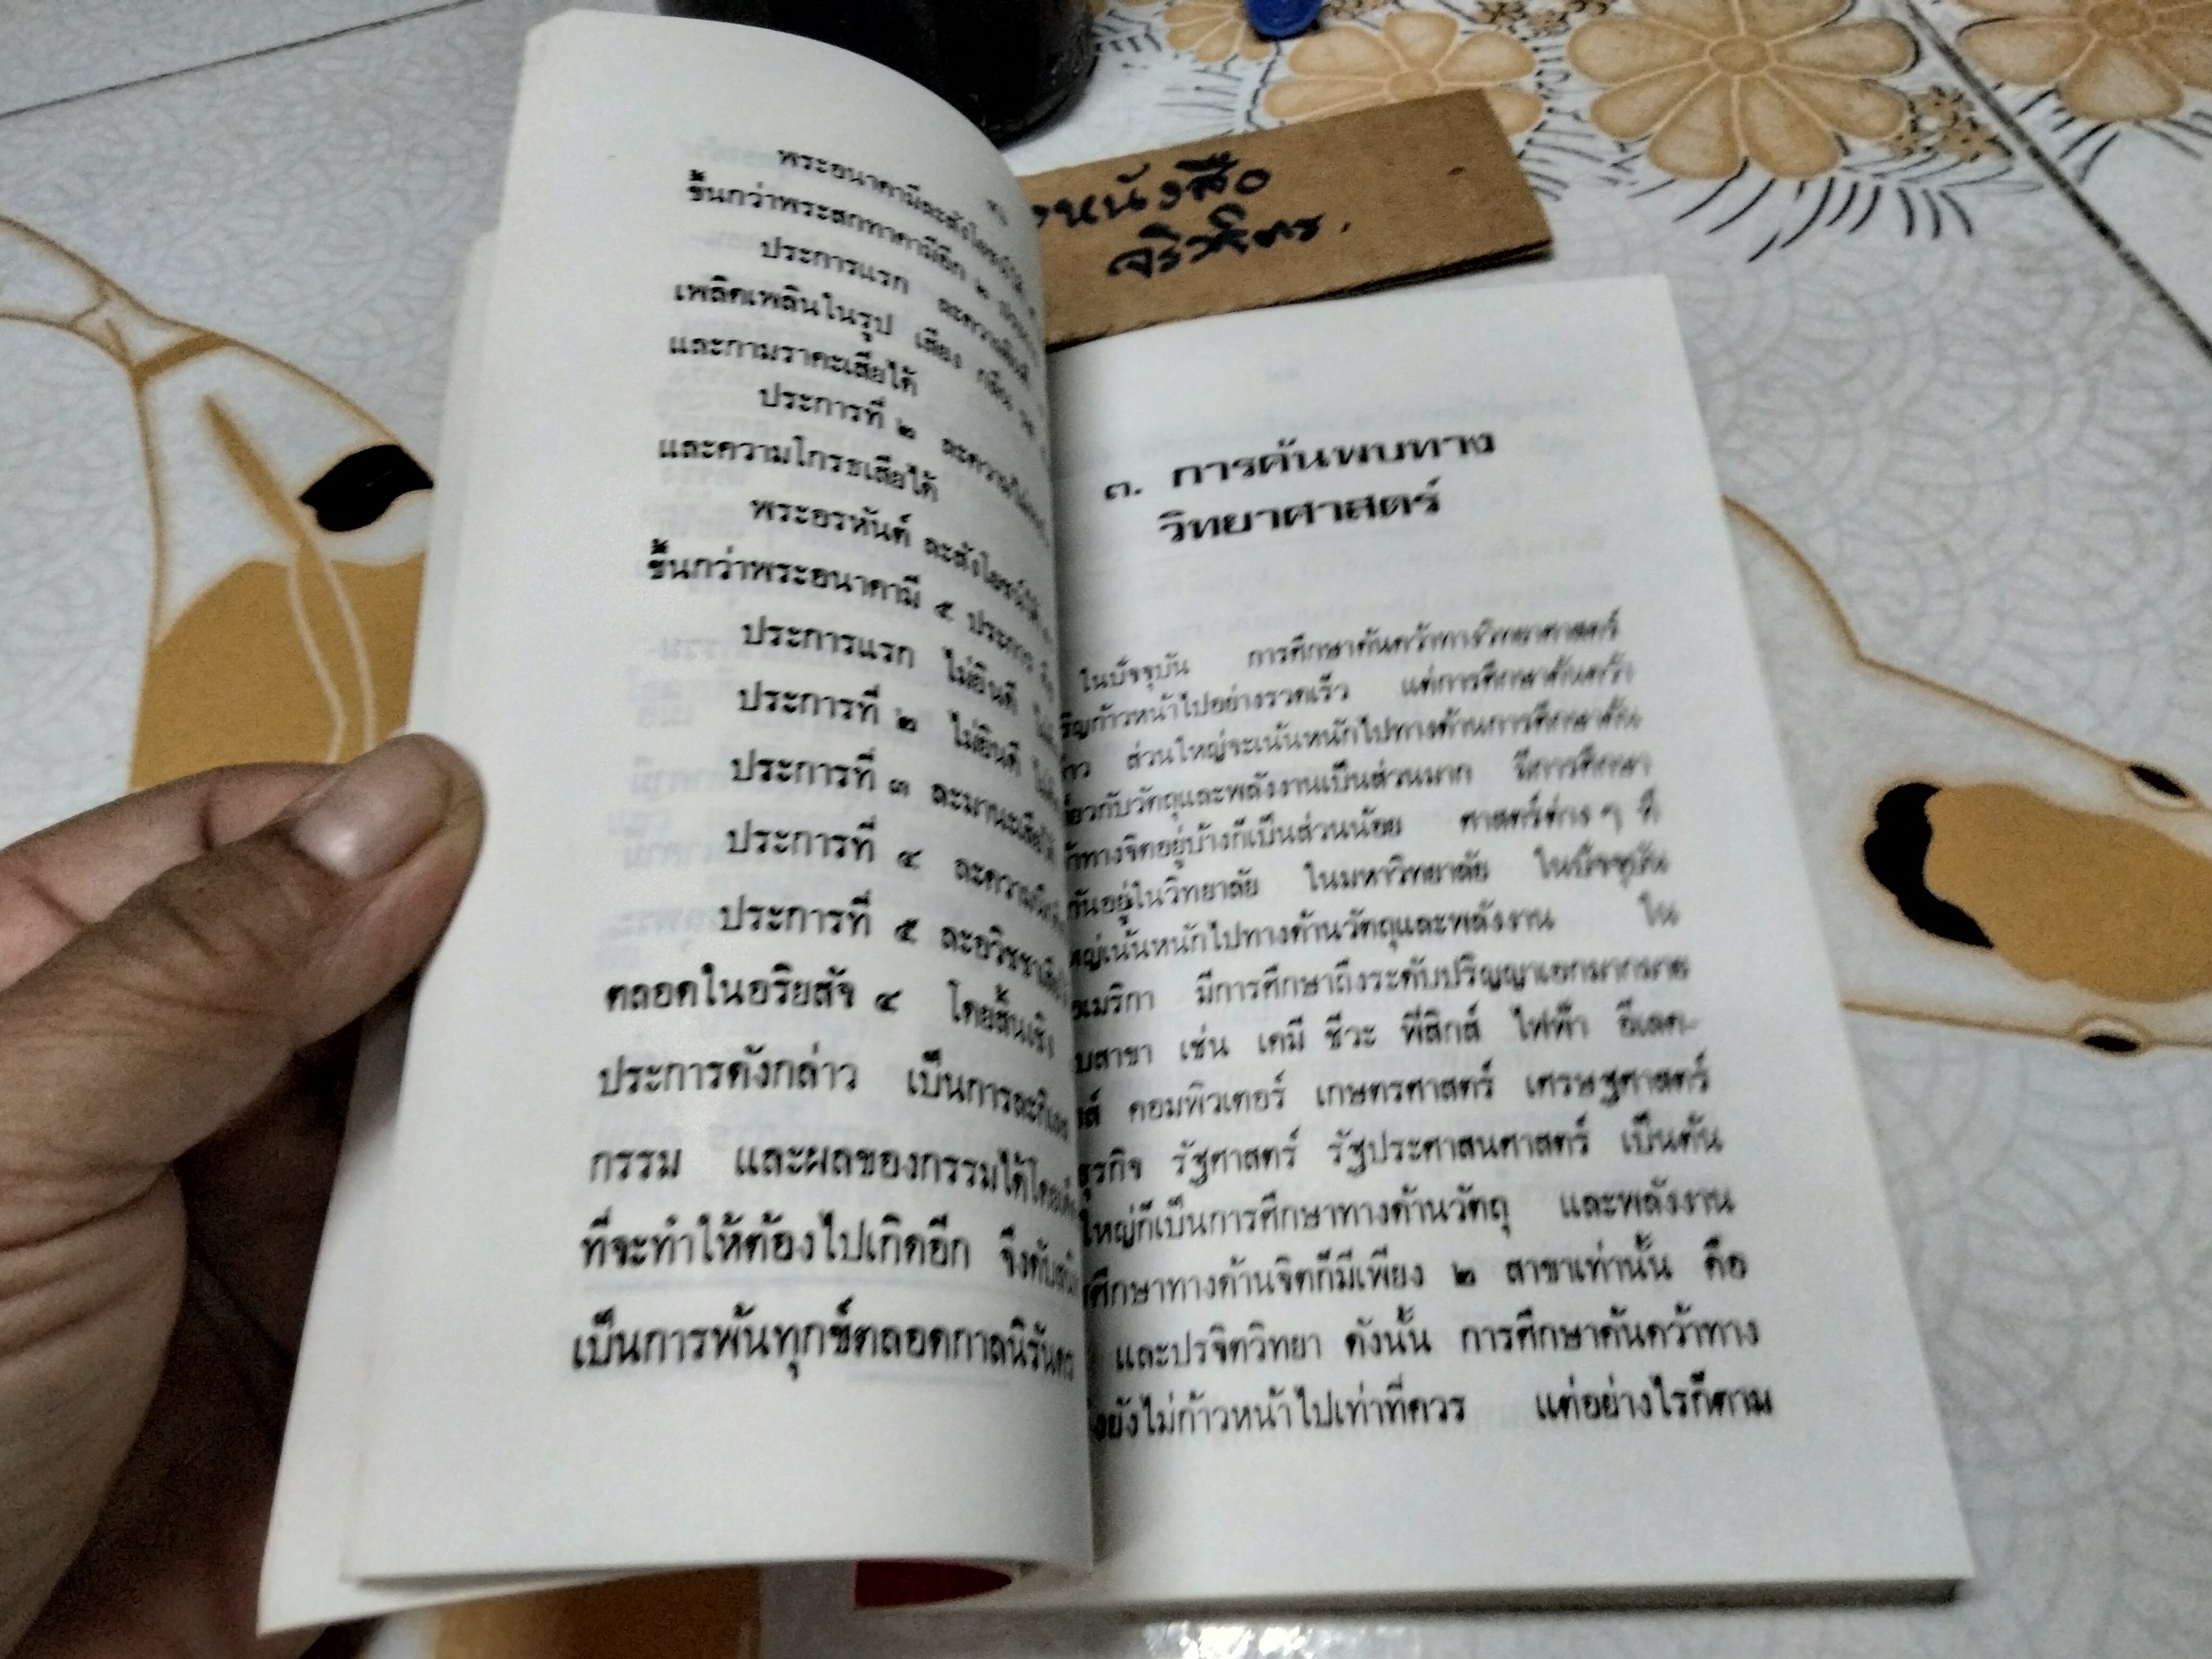 พระอนาคามีละสังโยชน์ได้
ขึ้นกว่าพระสกทาคามีอีก ๒
ประการแรก ละความยินดี
เพลิดเพลินในรูป เสียง กลิ่น รส
และกามราคะเสียได้
ประการที่ ๒
และความโกรธเสียได้
พระอรหันต์ ละสังโยชน์ได้
ขึ้นกว่าพระอนาคามี ๕ ประการ คือ
ประการแรก ไม่ยินดี
ประการที่ ๒ ไม่ยินดี
ประการที่ ๓ ละมานะเสียได้
ประการที่ ๔
ประการที่ ๕ ละอวิชชา
ตลอดในอริยสัจ ๔ โดยสิ้นเชิง
ประการดังกล่าว เป็นการละกิเลส
กรรม และผลของกรรมได้
ที่จะทำให้ต้องไปเกิดอีก
เป็นการพ้นทุกข์ตลอดกาลนิรันดร
หนังสือ
๓. การค้นพบทาง
วิทยาศาสตร์
ในปัจจุบัน การศึกษาค้นคว้าทางวิทยาศาสตร์
ริญก้าวหน้าไปอย่างรวดเร็ว แต่การศึกษาค้นคว้า
ส่วนใหญ่จะเน้นหนักไปทางด้านการศึกษาค้น
ี่ยวกับวัตถุและพลังงานเป็นส่วนมาก มีการศึกษา
ทางจิตอยู่บ้างก็เป็นส่วนน้อย ศาสตร์ต่าง ๆ ที่
กันอยู่ในวิทยาลัย ในมหาวิทยาลัย ในปัจจุบัน
หญ่เน้นหนักไปทางด้านวัตถุและพลังงาน ใน
อเมริกา มีการศึกษาถึงระดับปริญญาเอกมากมาย
บสาขา เช่น เคมี ชีวะ ฟิสิกส์ ไฟฟ้า อีเลค-
ส์ คอมพิวเตอร์ เกษตรศาสตร์ เศรษฐศาสตร์
ธุรกิจ รัฐศาสตร์ รัฐประศาสนศาสตร์ เป็นต้น
ใหญ่ก็เป็นการศึกษาทางด้านวัตถุ และพลังงาน
ศึกษาทางด้านจิตก็มีเพียง ๒ สาขาเท่านั้น คือ
และปรจิตวิทยา ดังนั้น การศึกษาค้นคว้าทาง
ยังไม่ก้าวหน้าไปเท่าที่ควร แต่อย่างไรก็ตาม